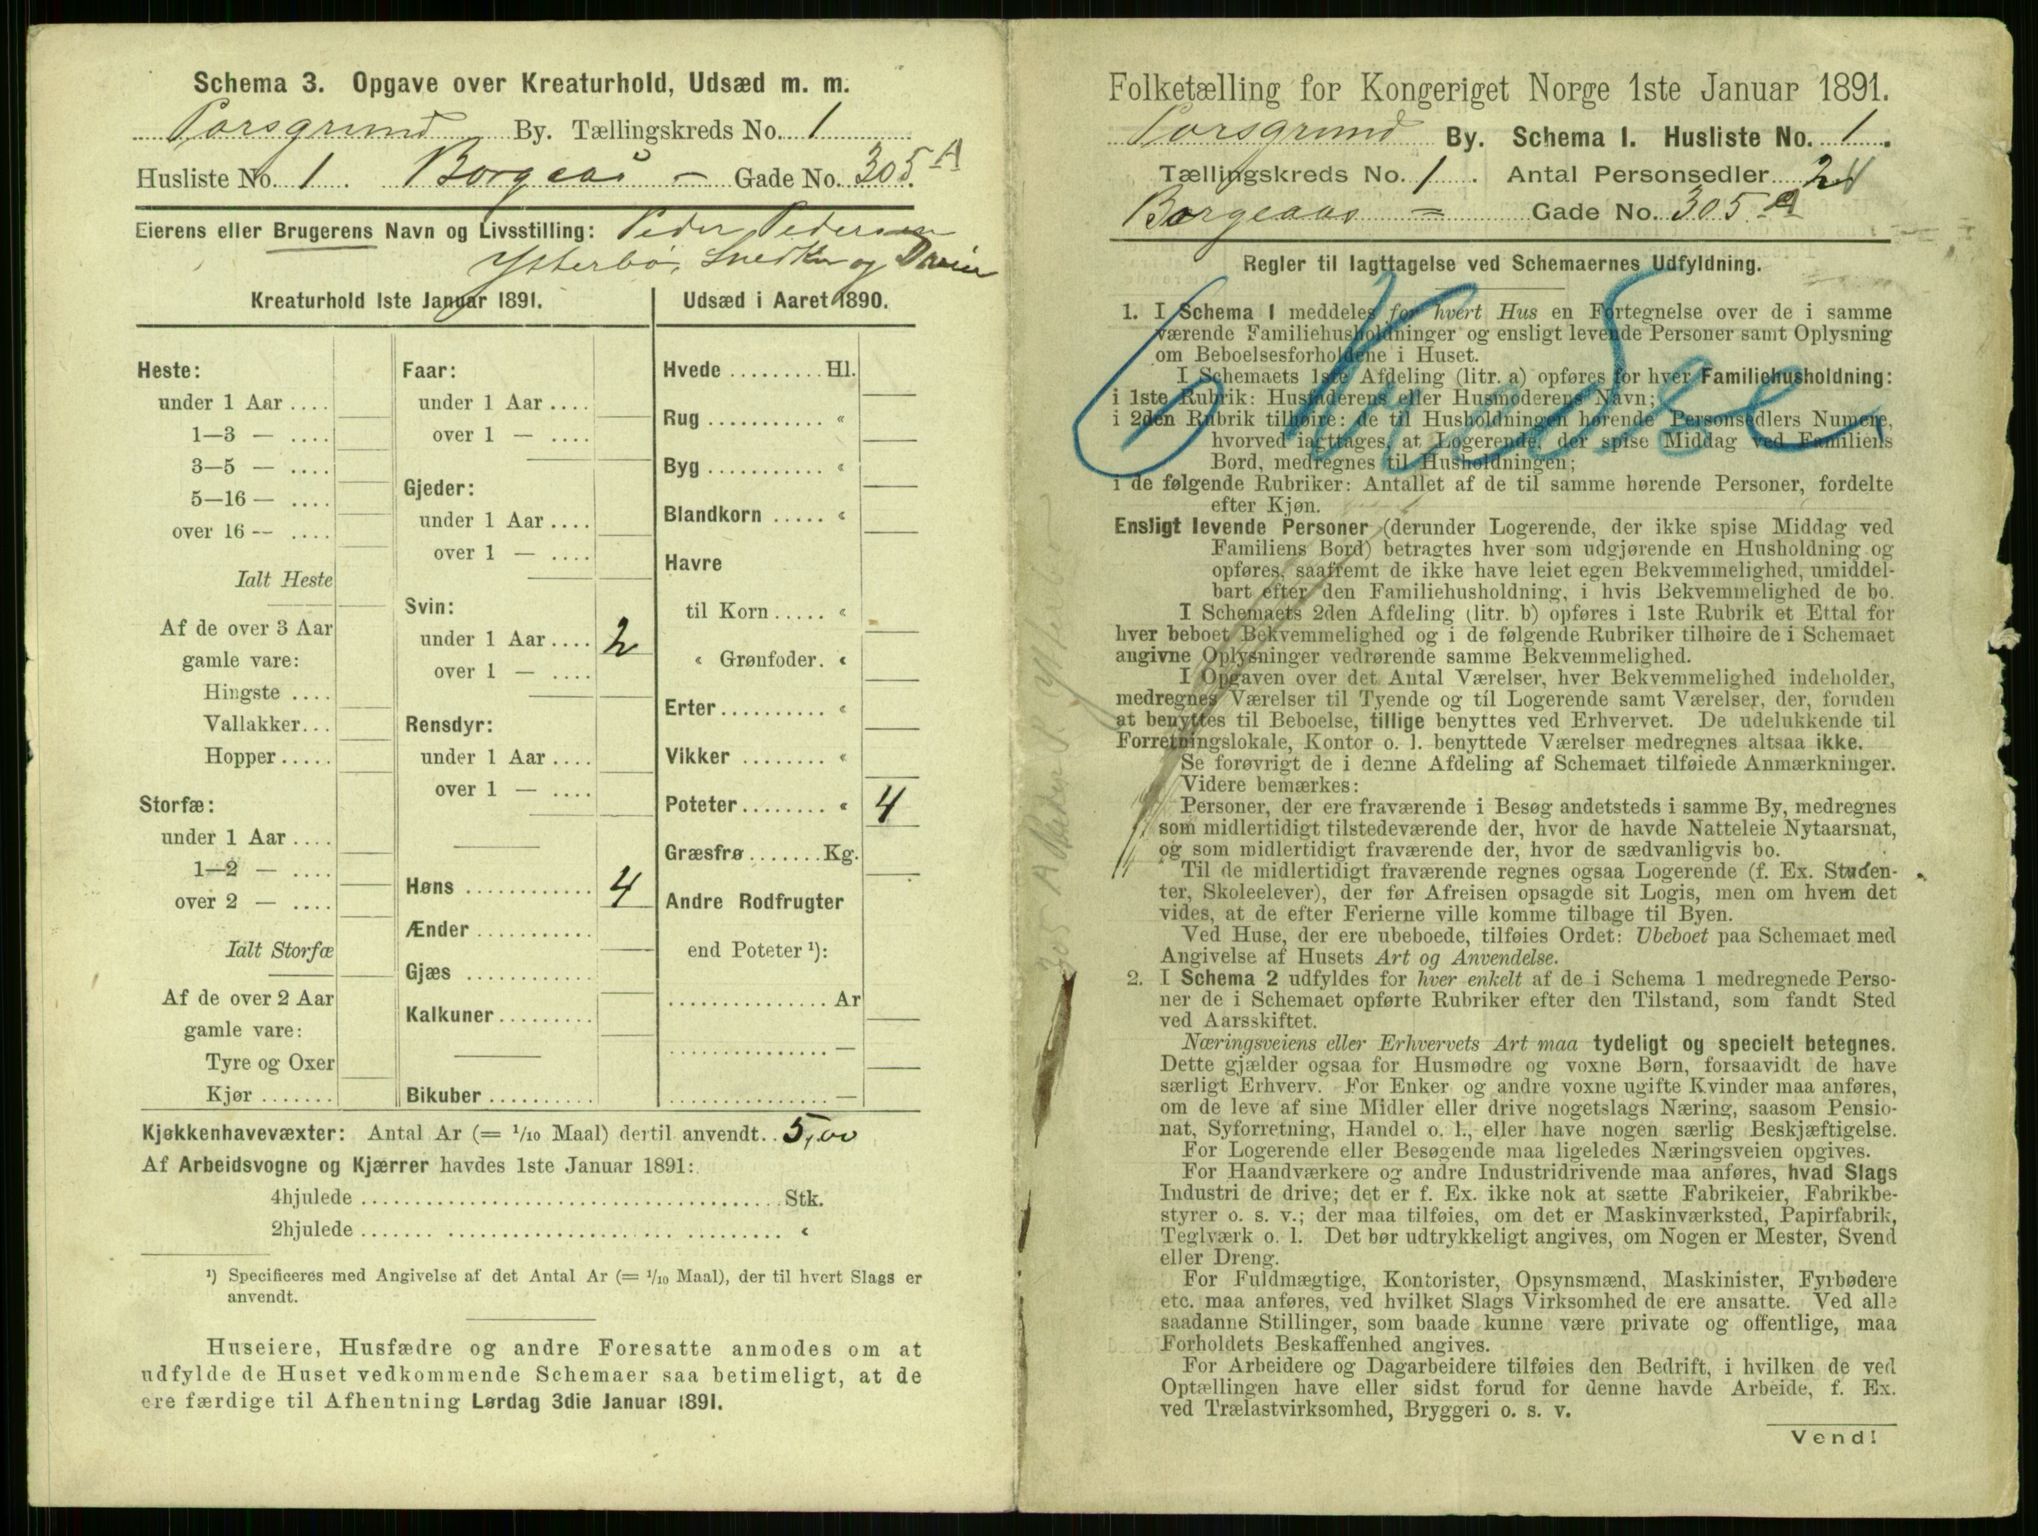 Schema 3. Opgave over Kreaturhold, Udsæd m. m.
Porsgrund By. Tællingskreds No. 1
Husliste No. 1 Borgeaas – Gade No. 305 A
Eierens eller Brugerens Navn og Livsstilling: Peder Pedersen
Ysterbø, Snedker og
Kreaturhold 1ste Januar 1891.
Heste:
under 1 Aar ....
1—3 — ....
3—5 — ....
5—16 — ....
over 16 — ....
Ialt Heste
Af de over 3 Aar
gamle vare:
Hingste ....
Vallakker...
Hopper.....
Storfæ:
under 1 Aar ....
1—2 — ....
over 2 — ....
Ialt Storfæ
Af de over 2 Aar
gamle vare:
Tyre og Oxer
Kjør .......
Faar:
under 1 Aar ....
over 1 — ....
Gjeder:
under 1 Aar ....
over 1 — ....
Svin:
under 1 Aar .... 2
over 1 — ....
Rensdyr:
under 1 Aar ....
over 1 — ....
Høns ............ 4
Ænder ...........
Gjæs ............
Kalkuner.........
Bikuber ..........
Udsæd i Aaret 1890.
Hvede ......... Hl.
Rug ........... «
Byg ........... «
Blandkorn ..... «
Havre
til Korn ..... «
« Grønfoder. «
Erter.......... «
Vikker ........ «
Poteter........ « 4
Græsfrø ....... Kg.
Andre Rodfrugter
end Poteter ¹):
............... Ar
............... —
............... —
Kjøkkenhavevæxter: Antal Ar (= 1/10 Maal) dertil anvendt.. 5,00
Af Arbeidsvogne og Kjærrer havdes 1ste Januar 1891:
4hjulede ........................................ Stk.
2hjulede ........................................ «
¹) Specificeres med Angivelse af det Antal Ar (= 1/10 Maal), der til hvert Slags er
anvendt.
Huseiere, Husfædre og andre Foresatte anmodes om at
udfylde de Huset vedkommende Schemaer saa betimeligt, at de
ere færdige til Afhentning Lørdag 3die Januar 1891.
305 A Peder P. Ysterbø
Folketælling for Kongeriget Norge 1ste Januar 1891.
Porsgrund By. Schema I. Husliste No. 1.
Tællingskreds No. 1. Antal Personsedler 2
Borgeaas = Gade No. 305 A
Regler til Iagttagelse ved Schemaernes Udfyldning.
6 Kredse
1. I Schema I meddeles for hvert Hus en Fortegnelse over de i samme
værende Familiehusholdninger og ensligt levende Personer samt Oplysning
om Beboelsesforholdene i Huset.
I Schemaets 1ste Afdeling (litr. a) opføres for hver Familiehusholdning:
i 1ste Rubrik: Husfaderens eller Husmoderens Navn;
i 2den Rubrik tilhøire: de til Husholdningen hørende Personsedlers Numere,
hvorved iagttages, at Logerende, der spise Middag ved Familiens
Bord, medregnes til Husholdningen;
i de følgende Rubriker: Antallet af de til samme hørende Personer, fordelte
efter Kjøn.
Ensligt levende Personer (derunder Logerende, der ikke spise Middag ved
Familiens Bord) betragtes hver som udgjørende en Husholdning og
opføres, saafremt de ikke have leiet egen Bekvemmelighed, umiddel-
bart efter den Familiehusholdning, i hvis Bekvemmelighed de bo.
I Schemaets 2den Afdeling (litr. b) opføres i 1ste Rubrik et Ettal for
hver beboet Bekvemmelighed og i de følgende Rubriker tilhøire de i Schemaet
angivne Oplysninger vedrørende samme Bekvemmelighed.
I Opgaven over det Antal Værelser, hver Bekvemmelighed indeholder,
medregnes Værelser til Tyende og til Logerende samt Værelser, der, foruden
at benyttes til Beboelse, tillige benyttes ved Erhvervet. De udelukkende til
Forretningslokale, Kontor o. l. benyttede Værelser medregnes altsaa ikke.
Se forøvrigt de i denne Afdeling af Schemaet tilføiede Anmærkninger.
Videre bemærkes:
Personer, der ere fraværende i Besøg andetsteds i samme By, medregnes
som midlertidigt tilstedeværende der, hvor de havde Natteleie Nytaarsnat,
og som midlertidigt fraværende der, hvor de sædvanligvis bo.
Til de midlertidigt fraværende regnes ogsaa Logerende (f. Ex. Studen-
ter, Skoleelever), der før Afreisen opsagde sit Logis, men om hvem det
vides, at de efter Ferierne ville komme tilbage til Byen.
Ved Huse, der ere ubeboede, tilføies Ordet: Ubeboet paa Schemaet med
Angivelse af Husets Art og Anvendelse.
2. I Schema 2 udfyldes for hver enkelt af de i Schema 1 medregnede Perso-
ner de i Schemaet opførte Rubriker efter den Tilstand, som fandt Sted
ved Aarsskiftet.
Næringsveiens eller Erhvervets Art maa tydeligt og specielt betegnes.
Dette gjælder ogsaa for Husmødre og voxne Børn, forsaavidt de have
særligt Erhverv. For Enker og andre voxne ugifte Kvinder maa anføres,
om de leve af sine Midler eller drive nogetslags Næring, saasom Pensio-
nat, Syforretning, Handel o. l., eller have nogen særlig Beskjæftigelse.
For Logerende eller Besøgende maa ligeledes Næringsveien opgives.
For Haandværkere og andre Industridrivende maa anføres, hvad Slags
Industri de drive; det er f. Ex. ikke nok at sætte Fabrikeier, Fabrikbe-
styrer o. s. v.; der maa tilføies, om det er Maskinværksted, Papirfabrik,
Teglværk o. l. Det bør udtrykkeligt angives, om Nogen er Mester, Svend
eller Dreng.
For Fuldmægtige, Kontorister, Opsynsmænd, Maskinister, Fyrbødere
etc. maa anføres, ved hvilket Slags Virksomhed de ere ansatte. Ved alle
saadanne Stillinger, som baade kunne være private og offentlige, maa
Forholdets Beskaffenhed angives.
For Arbeidere og Dagarbeidere tilføies den Bedrift, i hvilken de ved
Optællingen have eller sidst forud for denne havde Arbeide, f. Ex.
ved Trælastvirksomhed, Bryggeri o. s. v.
Vend!